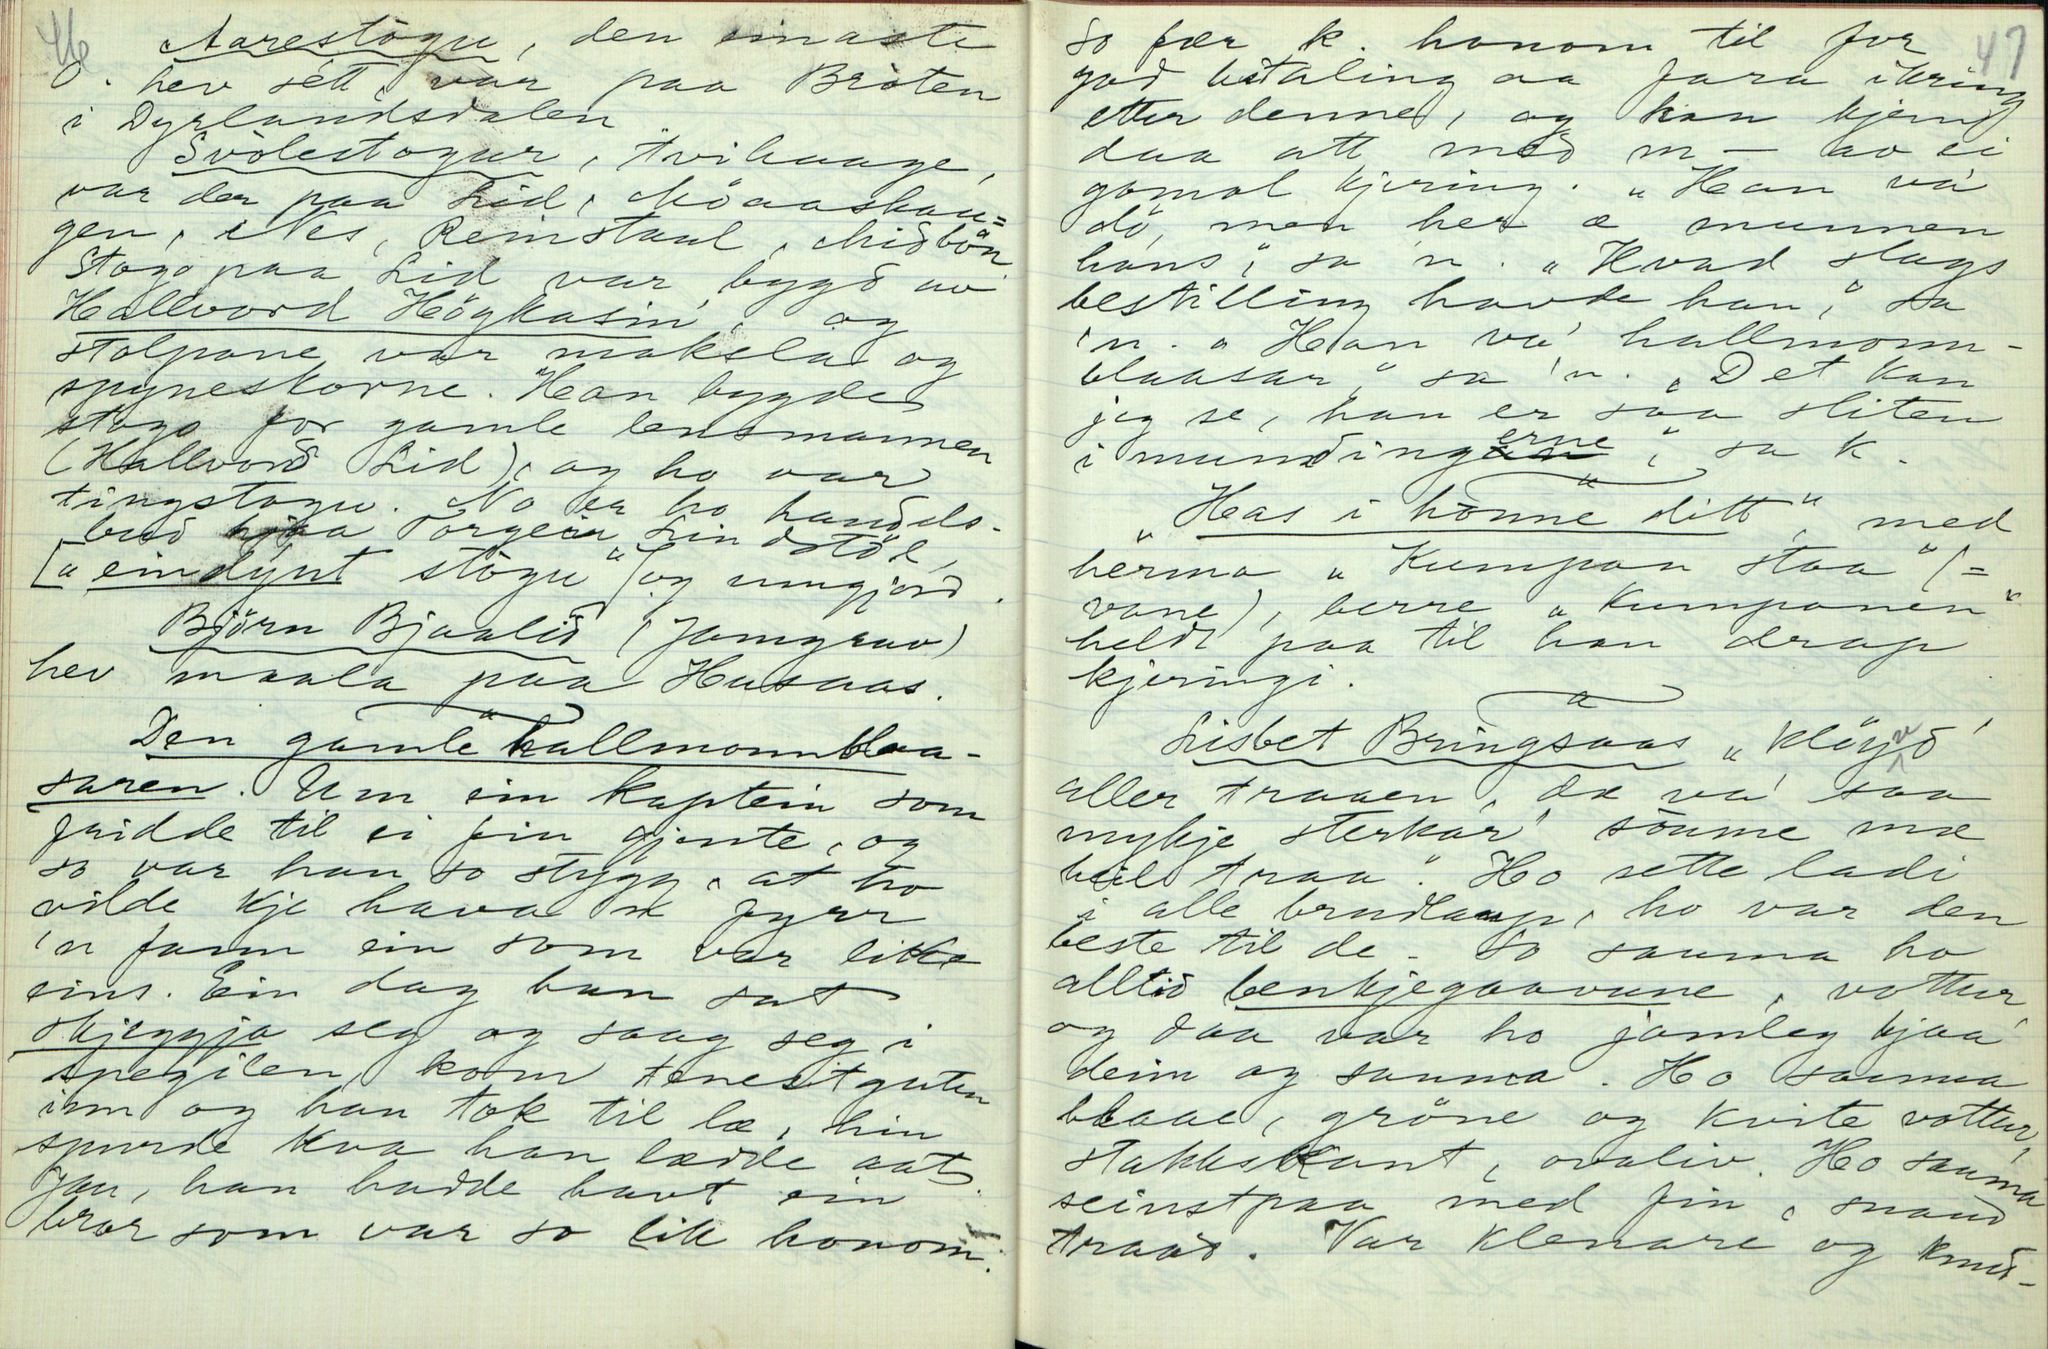 46
Aarestogu, den einaste
O. hev sétt, var paa Bróten
i Dyrlandsdalen
Svolestogur, tvihaage,
var der paa Lid, Möaashau=
gen, Nes, Reinstaul, Midbön.
Stogo paa Lid var bygd av
Hallvord Högkasin', og
stolpane var maksla og
spyneskorne. Han bygde
stogo for gamle lensmannen
(Hallvord Lid), og ho var
tingstogu. No er ho handels-
bud hjaa Torgeir Lindstöl,
["eindynt stogu"] og umgjord.
Björn Bjaalid (Jamgrav)
hev maala paa Husaas.
Den gamle hallmonnblaa-
saren. Um ein kaptein som
fridde til ei fin gjente, og
so var han so stygg, at ho
vilde kje hava 'n fyrr
'n fann ein som var like
eins. Ein dag han sat
skjeggja seg og saag seg i
spegilen, kom tenestguten
inn og han tok til læ, hin
spurde kva han lædde aat.
Jau, han hadde havt ein
bror som var so lik honom.
47
So fær k. honom til for
god betaling aa fara ikring
etter denne, og han kjem
daa att med m— av ei
gomol kjering. "Han va'
dö, men her æ munnen
hans", sa 'n. "Hvad slags
bestilling havde han," sa
'n. "Han va' hallmonn-
blaasar," sa 'n. "Det kan
jeg se, han er saa sliten
i mundingerne", sa k.
"Has i hönne ditt", med
herma "Kumpan staa" (=
vane), berre "Kumpanen"
heldt paa til han drap
kjeringi.
Lisbet Bringsaas "kløyvd'
aller traaen, dæ va' saa
mykje sterkar' saume mæ
heil traa". Ho sette ladi
i alle brudlaup, ho var den
beste til de. So sauma ho
alltid benkjegaavune, vottur,
og daa var ho jamleg hjaa
deim og sauma. Ho sauma
blaae, gröne og kvite vottur,
stakkskant, ovaliv. Ho sauma
seinstpaa med fin, snaud
traad. Var klenare og knud-